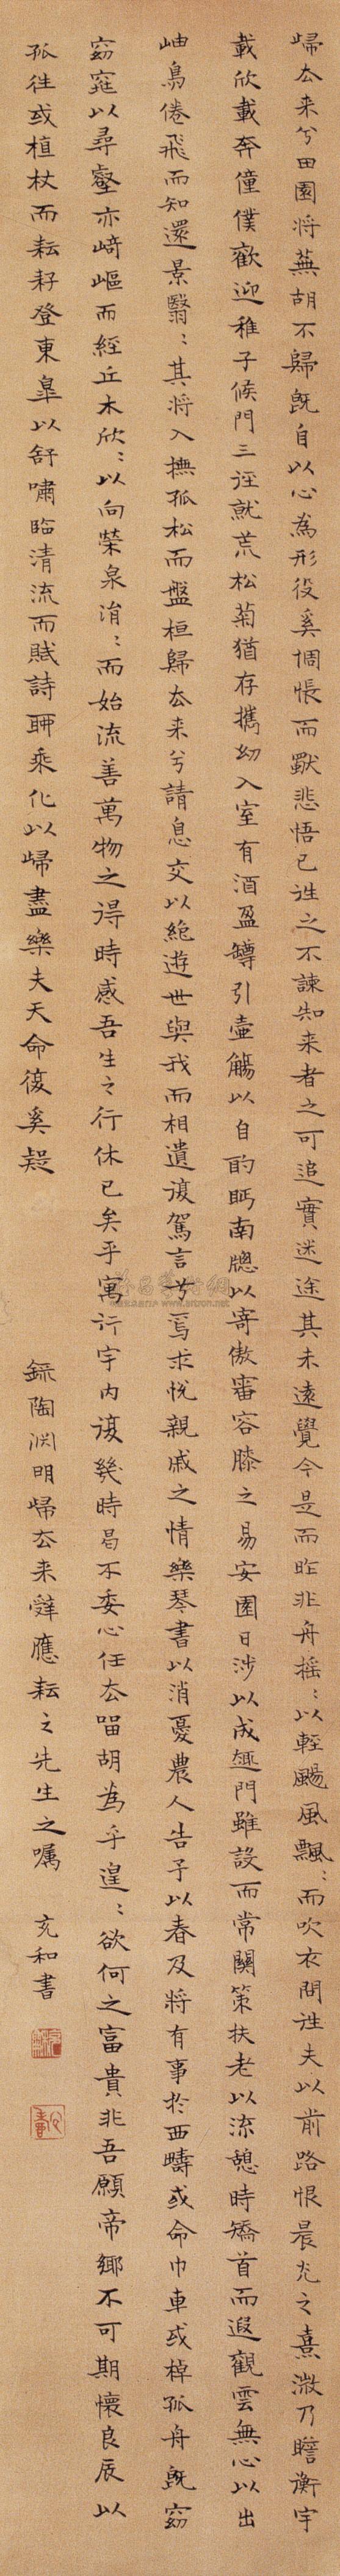 歸去来兮田園将蕪胡不歸既自以心為形役奚惆悵而獸悲悟已往之不諫知来者之可追實迷途其未遠覺今是而昨非舟摇〻以輕颺風飄〻而吹衣問往夫以前路恨晨光之熹微乃瞻衡宇
載欣載奔僮僕歡迎稚子候門三径就荒松菊猶存攜幼入室有酒盈罇引壺觴以自酌眄南牕以寄傲審容膝之易安園日涉以成趣門雖設而常關策扶老以流憩時矯首而遐觀雲無心以出
岫鳥倦飛而知還景翳〻其将入撫孤松而盤桓歸去来兮請息交以絶遊世與我而相遺復駕言兮焉求悅親戚之情樂琴書以消憂農人告予以春及将有事於西疇或命巾車或棹孤舟既窈
窈窕以尋壑亦崎嶇而經丘木欣〻以向榮泉涓〻而始流善萬物之得時感吾生之行休已矣乎寓形宇内復幾時曷不委心任去留胡為乎遑〻欲何之富貴非吾願帝鄉不可期懷良辰以
孤往或植杖而耘耔登東皋以舒嘯臨清流而賦詩聊乘化以歸盡樂夫天命復奚疑
錄陶淵明歸去来辭應耘之先生之囑 充和書